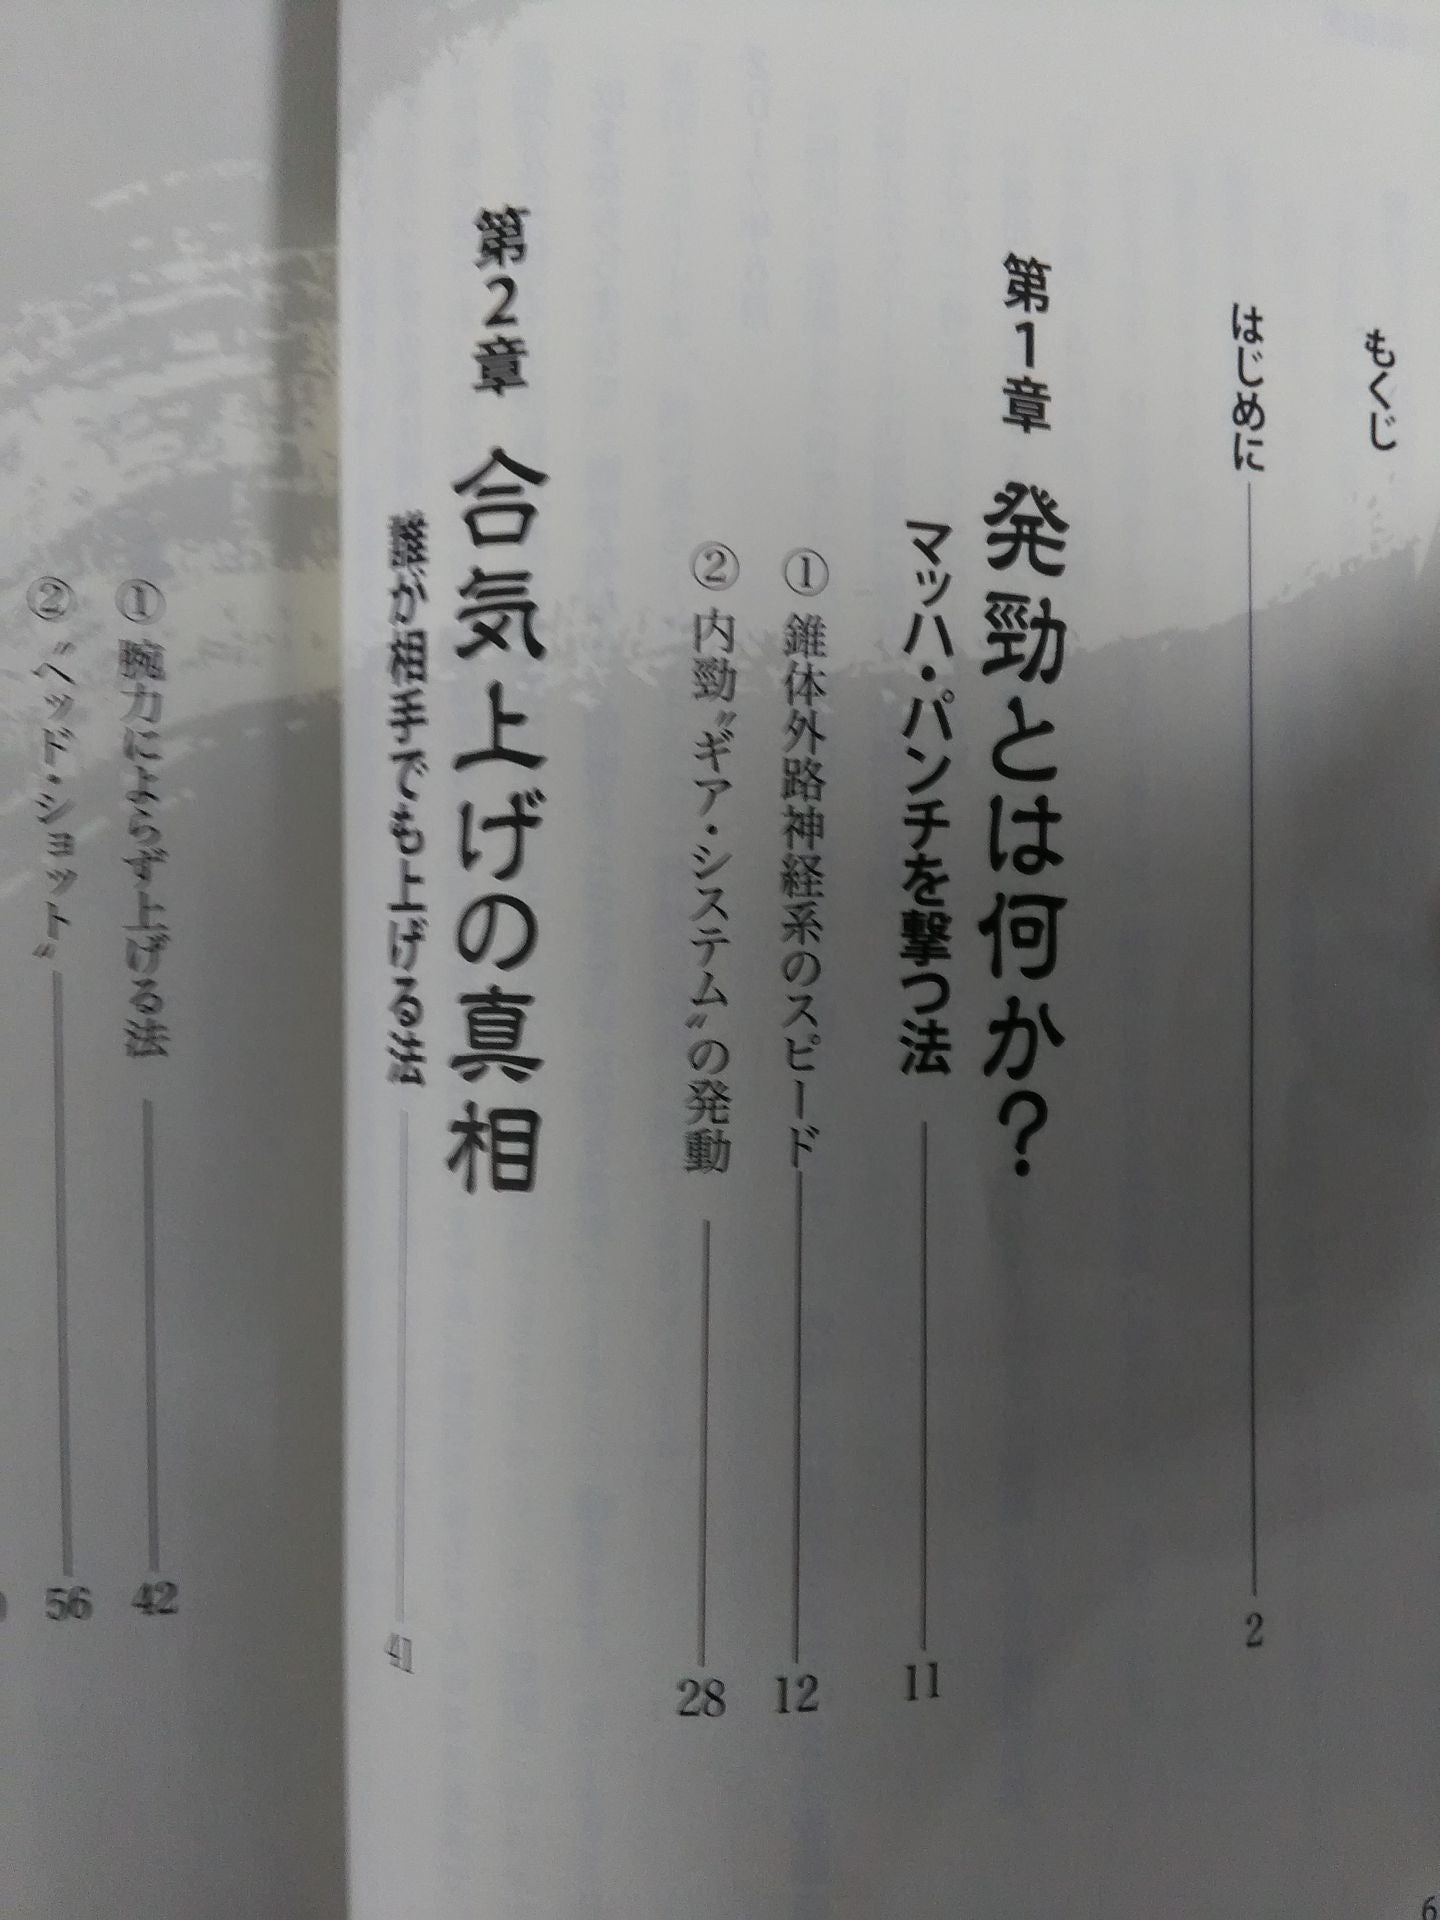 もくじ
はじめに 2
第1章 発勁とは何か?
マッハ・パンチを撃つ法 11
① 錐体外路神経系のスピード 12
② 内勁〝ギア・システム〟の発動 28
第2章 合気上げの真相
誰が相手でも上げる法 41
① 腕力によらず上げる法 42
② 〝ヘッド・ショット〟 56
6